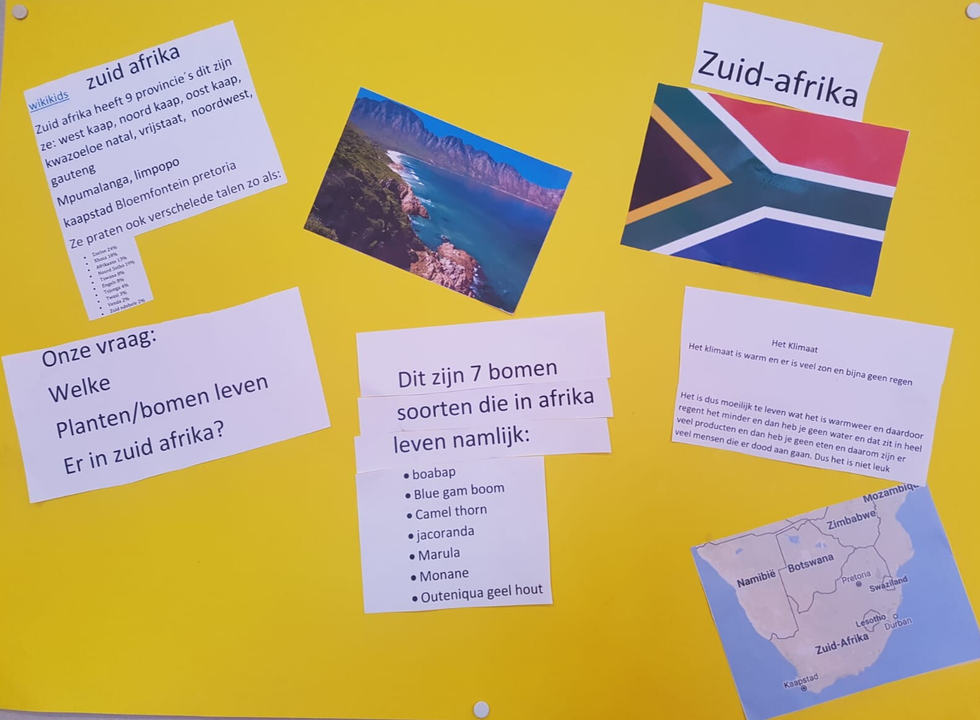 zuid afrika
wikikids
Zuid afrika heeft 9 provincie's dit zijn
ze: west kaap, noord kaap, oost kaap,
kwazoeloe natal, vrijstaat, noordwest,
gauteng
Mpumalanga, limpopo
kaapstad Bloemfontein pretoria
Ze praten ook verschelede talen zo als:
Zoeloe 24%
Xhosa 18%
Afrikaans 13%
Tswana 8%
Engels 8%
Tsonga 4%
Venda 2%
Zuid ndebele 2%
Onze vraag:
Welke
Planten/bomen leven
Er in zuid afrika?
Dit zijn 7 bomen
soorten die in afrika
leven namlijk:
boabap
Blue gam boom
Camel thorn
jacoranda
Marula
Monane
Outeniqua geel hout
Zuid-afrika
Het Klimaat
Het klimaat is warm en er is veel zon en bijna geen regen
Het is dus moeilijk te leven wat het is warmweer en daardoor
regent het minder en dan heb je geen water en dat zit in heel
veel producten en dan heb je geen eten en daarom zijn er
veel mensen die er dood aan gaan. Dus het is niet leuk
Mozambique
Zimbabwe
Namibië
Botswana
Pretoria
Swaziland
Lesotho
Durban
Zuid-Afrika
Kaapstad